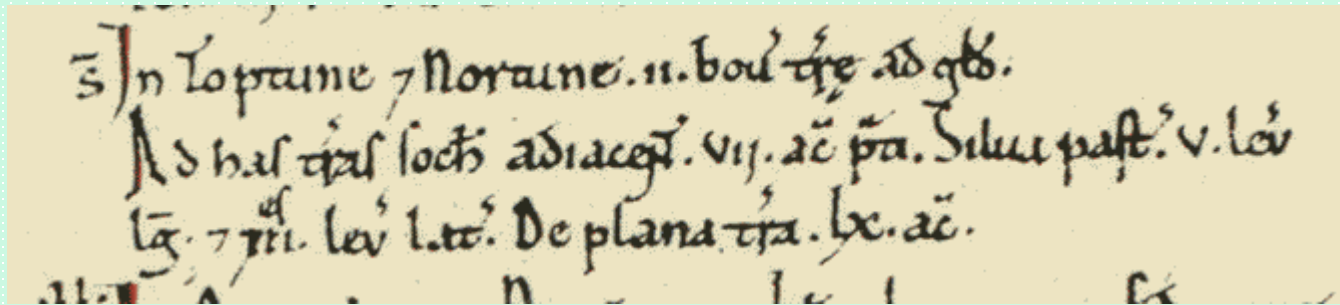 S̄ In Loptune ⁊ Nortune. ii. bou' tr̄ę ad gld̄.
Ad has tr'as soch̄ adiaceɴt. vij. ac̄ p̄ti. Silua past'. v. lev'
lḡ. ⁊ iii. lev' lat'. De plana tr'a. lx. ac̄.